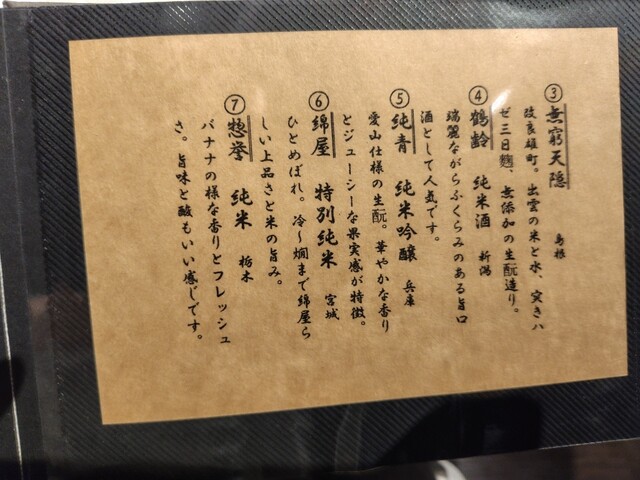 ③無窮天隠 島根
改良雄町。出雲の米と水、突きハ
ゼ三日麹、無添加の生酛造り。
④鶴齢 純米酒 新潟
瑞麗ながらふくらみのある旨口
酒として人気です。
⑤純青 純米吟醸 兵庫
愛山仕様の生酛。華やかな香り
とジューシーな果実感が特徴。
⑥綿屋 特別純米 宮城
ひとめぼれ。冷〜燗まで綿屋ら
しい上品さと米の旨み。
⑦惣誉 純米 栃木
バナナの様な香りとフレッシュ
さ。旨味と酸もいい感じです。